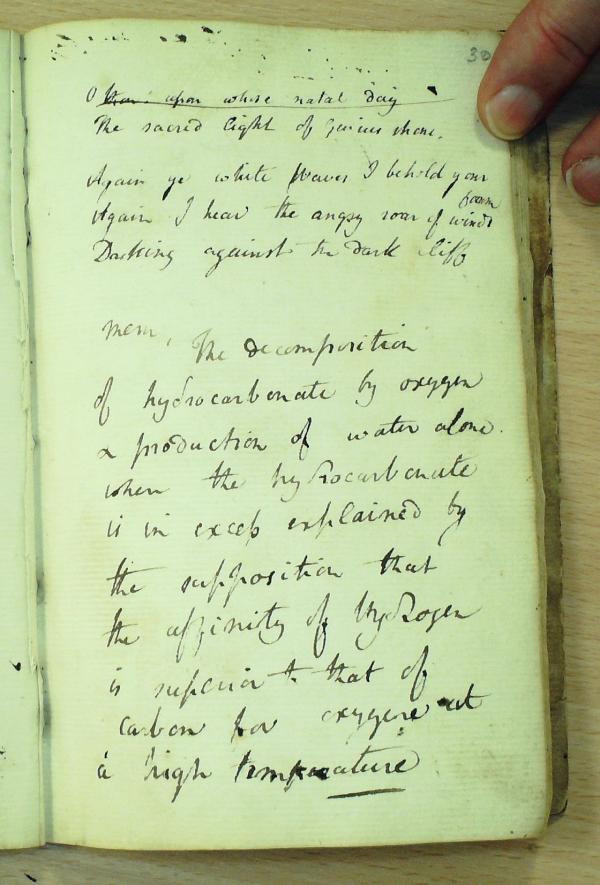 30
O thou upon whose natal day
The sacred light of Genius shone.
Again ye white waves I behold your
foam
Again I hear the angry roar of winds
Dashing against the dark cliff
Mem, The decomposition
of hydrocarbonate by oxygen
& production of water alone.
when the hydrocarbonate
is in excess explained by
the supposition that
the affinity of hydrogen
is superior to that of
carbon for oxygene at
a high temperature